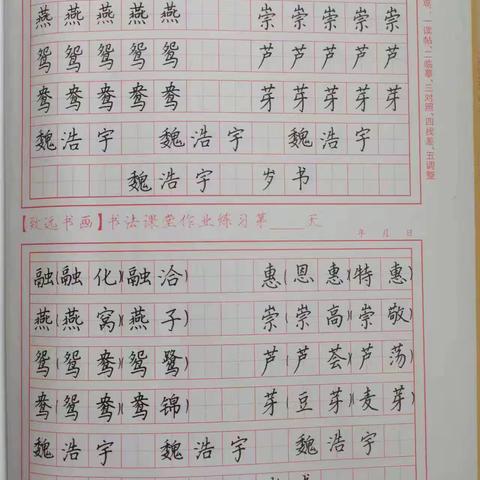 燕燕燕燕燕 崇崇崇崇崇
鸳鸳鸳鸳鸳 芦芦芦芦芦
鸯鸯鸯鸯鸯 芽芽芽芽芽
魏浩宇 魏浩宇 魏浩宇
魏浩宇 岁书
一读帖、二临摹、三对照、四找差、五调整
【致远书画】书法课堂作业练习第____天
年 月 日
融(融化)(融洽) 惠(恩惠)(特惠)
燕(燕窝)(燕子) 崇(崇高)(崇敬)
鸳(鸳鸯)(鸳鹭) 芦(芦荟)(芦荡)
鸯(鸳鸯)(鸯锦) 芽(豆芽)(麦芽)
魏浩宇 魏浩宇 魏浩宇